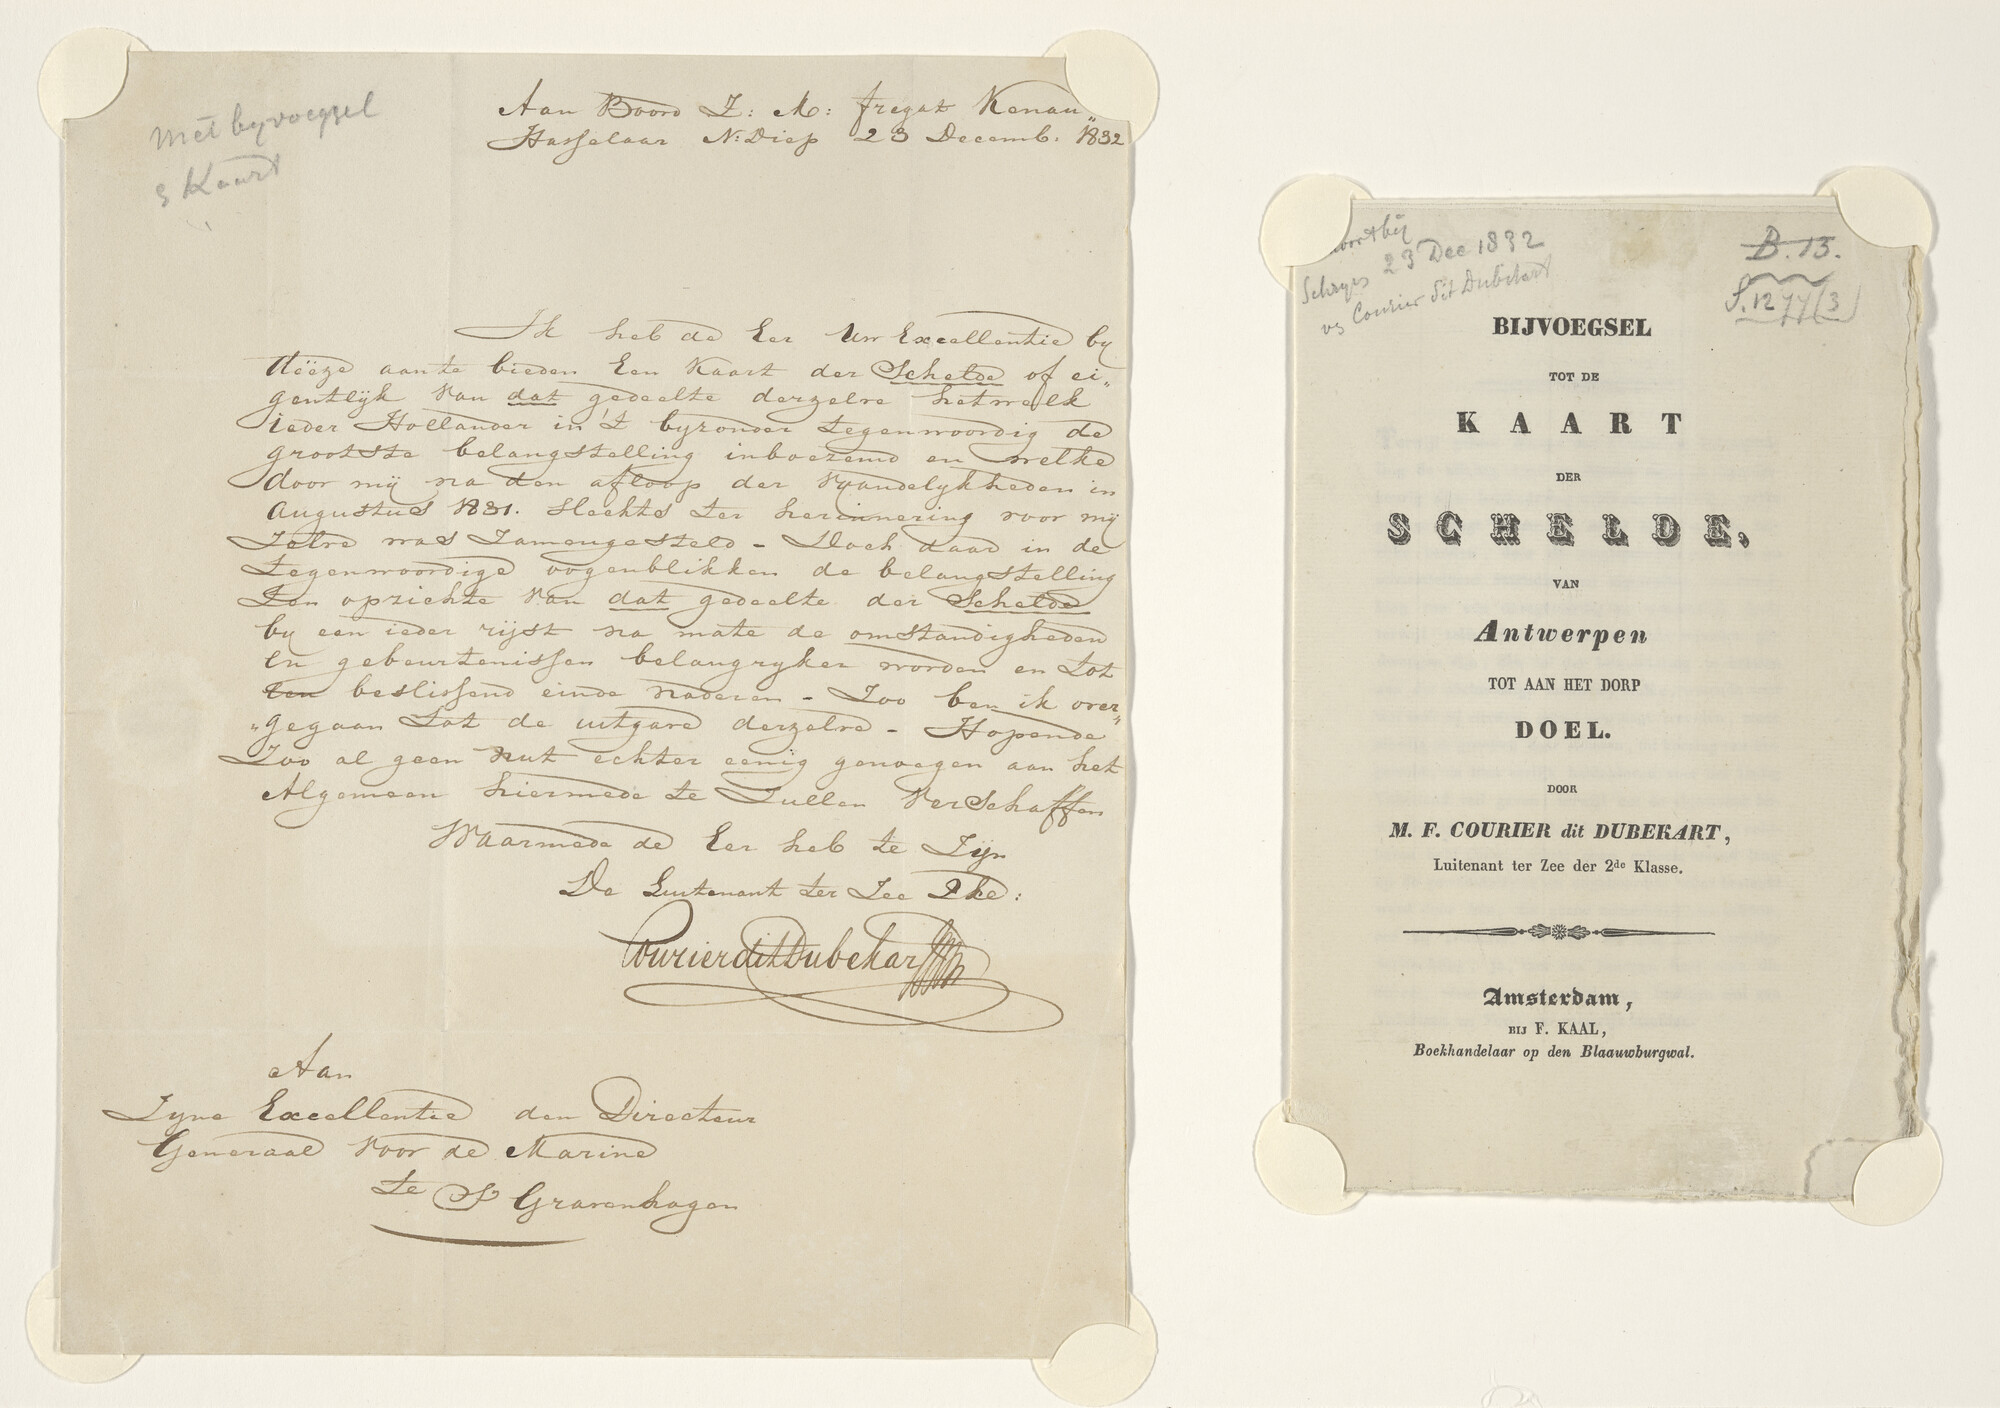 Met byvoegsel
& Kaart
Aan Boord Z: M: fregat Kenau„
Hasselaar N: Diep 23 Decemb. 1832
Ik heb de Eer Uw Excellentie by
dëeze aan te bieden Een Kaart der Schelde of ei„
gentlijk van dat gedeelte derzelve hetwelk
ieder Hollander in 't byzonder tegenwoordig de
grootste belangstelling inboezemd en welke
door mij na den afloop der Vyandelykheden in
Augustus 1831. slechts ter herinnering voor mij
Zelve was Zamengesteld - Doch daar in de
tegenwoordige oogenblikken de belangstelling
ten opzichte van dat gedeelte der Schelde
by een ieder rijst na mate de omstandigheden
en gebeurtenissen belangryker worden en tot
een beslissend einde naderen - Zoo ben ik over„
„gegaan tot de uitgave derzelve - Hopende
Zoo al geen nut echter eenig genoegen aan het
Algemeen hiermede te Zullen verschaffen
Waarmede de Eer heb te Zijn
De Luitenant ter Zee 2 kl:
Courier dit Dubekart
Aan
Zyne Excellentie den Directeur
Generaal voor de Marine
te S' Gravenhagen
hoort bij
Schryv 23 Dec 1832
vs Courier dit Dubekart
B. 13.
S. 1277(3)
BIJVOEGSEL
TOT DE
KAART
DER
SCHELDE,
VAN
Antwerpen
TOT AAN HET DORP
DOEL.
DOOR
M. F. COURIER dit DUBEKART,
Luitenant ter Zee der 2de Klasse.
Amsterdam,
BIJ F. KAAL,
Boekhandelaar op den Blaauwburgwal.